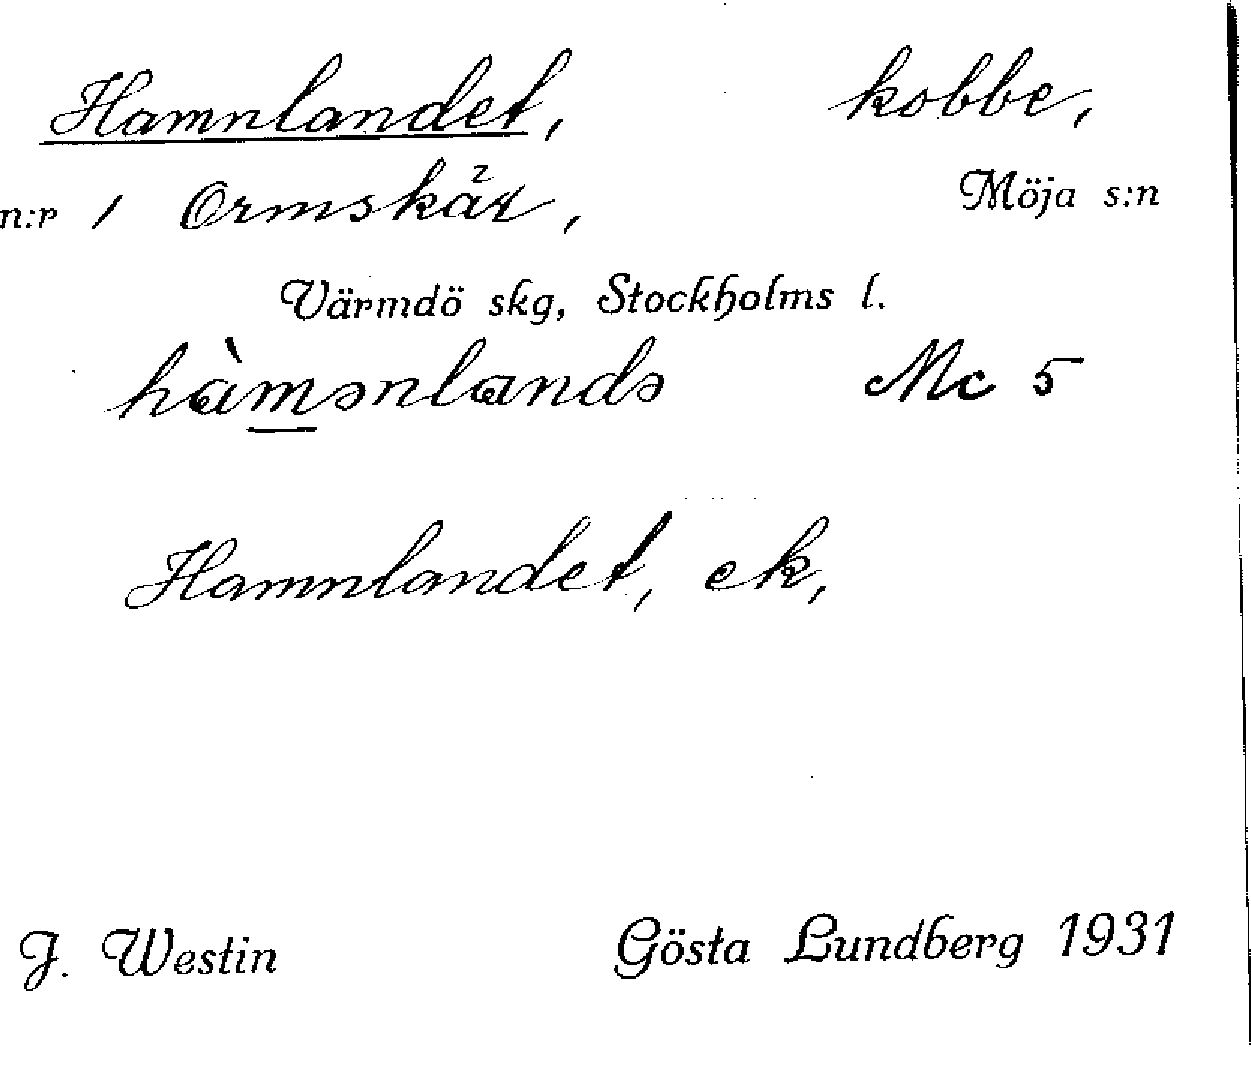 Hamnlandet, kobbe,
n:r 1 Ormskär, Möja s:n
Värmdö skg, Stockholms l.
hàmənlandə Mc 5
Hamnlandet, ek,
J. Westin Gösta Lundberg 1931